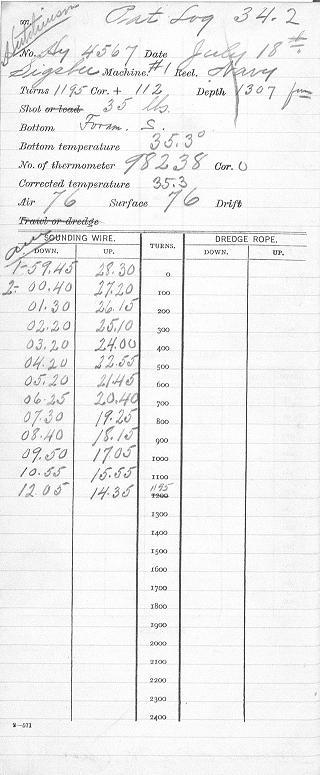 Hutchinson
507. Pat Log 34.2
No. Hy 4567 Date July 18th
Sigsbee Machine. #1 Reel. Navy
Turns 1195 Cor. + 112 Depth 1307 fm
Shot or lead 35 lbs.
Bottom Foram. S.
Bottom temperature 35.3°
No. of thermometer 98238 Cor. 0
Corrected temperature 35.3
Air 76 Surface 76 Drift
Trawl or dredge
SOUNDING WIRE. TURNS. DREDGE ROPE.
DOWN. UP. DOWN. UP.
1-59.45 28.30 0
2- 00.40 27.20 100
01.30 26.15 200
02.20 25.10 300
03.20 24.00 400
04.20 22.55 500
05.20 21.45 600
06.25 20.40 700
07.30 19.25 800
08.40 18.15 900
09.50 17.05 1000
10.55 15.55 1100
12.05 14.35 1195 1200
1300
1400
1500
1600
1700
1800
1900
2000
2100
2200
2300
2400